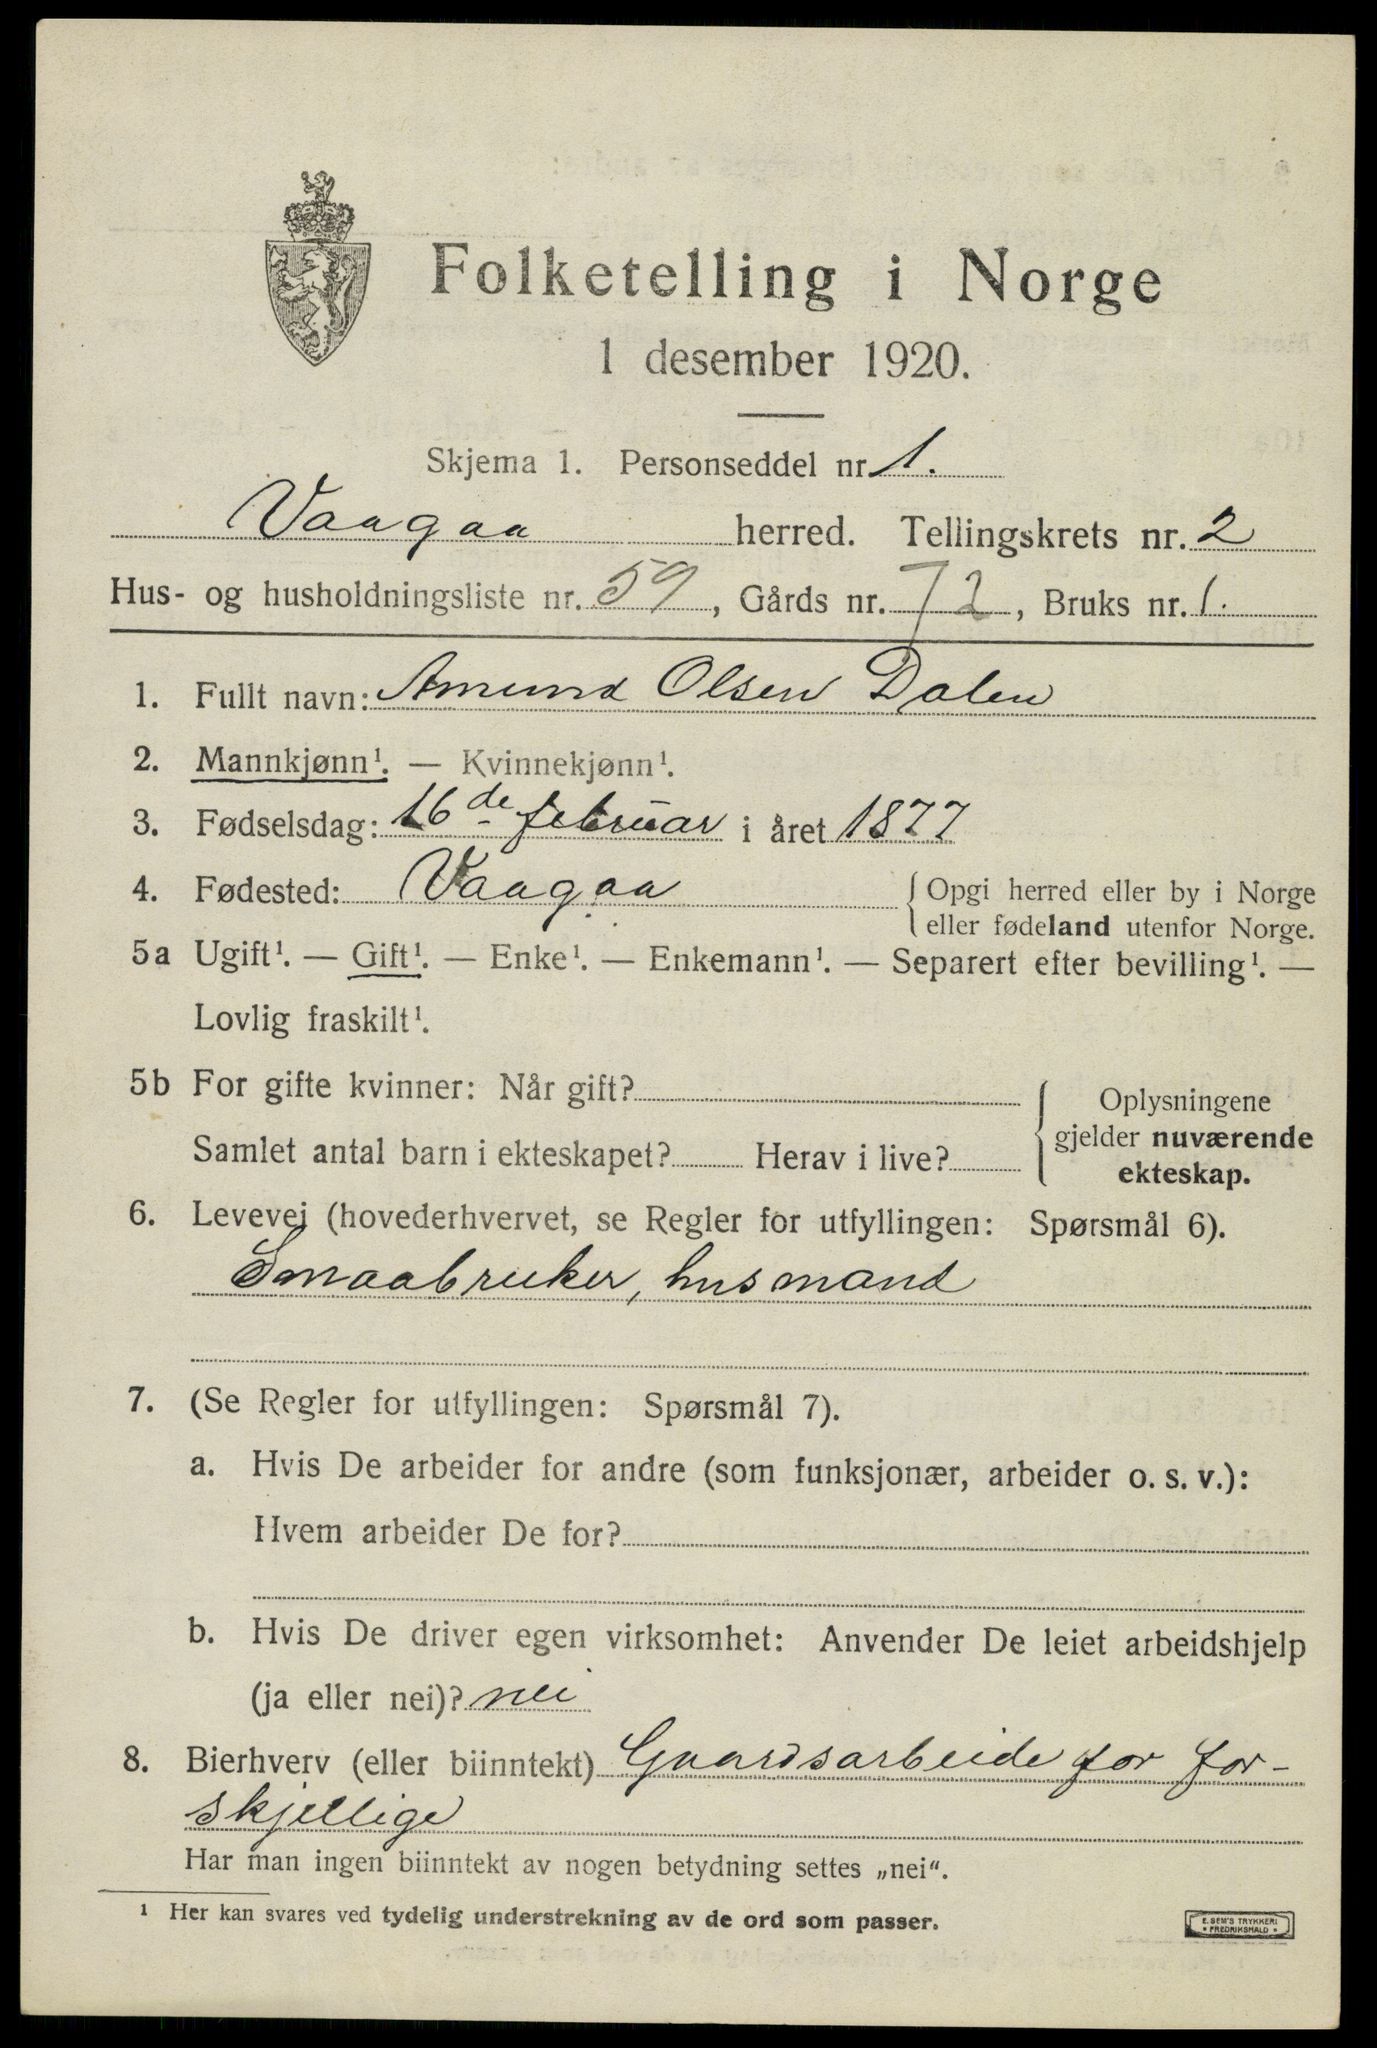 Folketelling i Norge
1 desember 1920.
Skjema 1. Personseddel nr 1.
Vaagaa herred. Tellingskrets nr. 2
Hus- og husholdningsliste nr. 59, Gårds nr. 72, Bruks nr. 1.
1. Fullt navn: Amund Olsen Dalen
2. Mannkjønn¹. — Kvinnekjønn¹.
3. Fødselsdag: 16de februar i året 1877
4. Fødested: Vaagaa { Opgi herred eller by i Norge
eller fødeland utenfor Norge.
5a Ugift¹. — Gift¹. — Enke¹. — Enkemann¹. — Separert efter bevilling¹. —
Lovlig fraskilt¹.
5b For gifte kvinner: Når gift?
Samlet antal barn i ekteskapet? Herav i live?
{ Oplysningene
gjelder nuværende
ekteskap.
6. Levevei (hovederhvervet, se Regler for utfyllingen: Spørsmål 6).
Smaabruker, husmand
7. (Se Regler for utfyllingen: Spørsmål 7).
a. Hvis De arbeider for andre (som funksjonær, arbeider o. s. v.):
Hvem arbeider De for?
b. Hvis De driver egen virksomhet: Anvender De leiet arbeidshjelp
(ja eller nei)? nei
8. Bierhverv (eller biinntekt) Gaardsarbeide for for-
skjellige
Har man ingen biinntekt av nogen betydning settes „nei“.
¹ Her kan svares ved tydelig understrekning av de ord som passer.
E. SEM'S TRYKKERI
• FREDRIKSHALD •